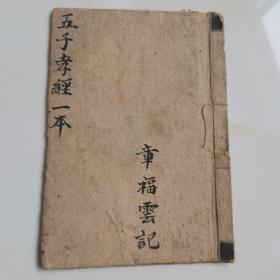 五子孝經一本
章福雲記